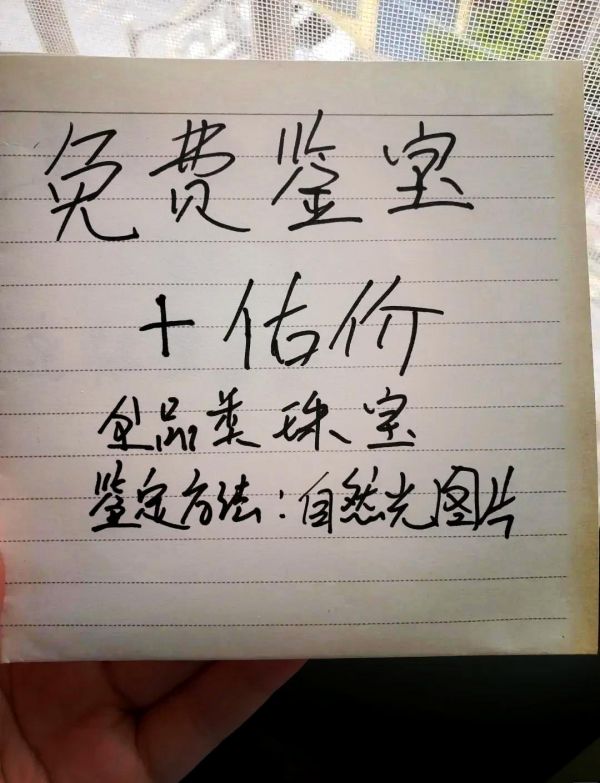 免费鉴宝
+估价
全品类珠宝
鉴定方法：自然光图片